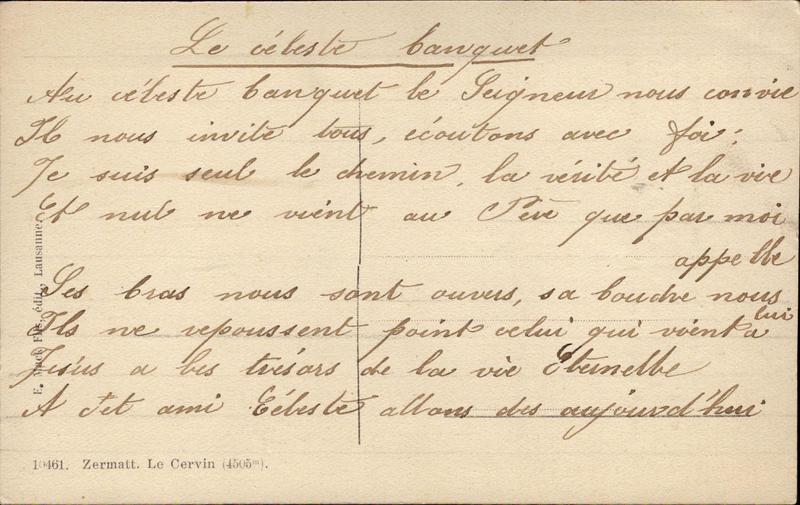 Le céleste banquet
Au céleste banquet le Seigneur nous convie
Il nous invite tous, écoutons avec foi:
Je suis seul le chemin, la vérité et la vie
Et nul ne vient au Père que par moi
appelle
Ses bras nous sont ouvers, sa bouche nous
Ils ne repoussent point celui qui vient a lui
Jesus a les trésors de la vie Eternelle
A cet ami Céleste allons des aujourd'hui
10461. Zermatt. Le Cervin (4505m).
édit., Lausanne